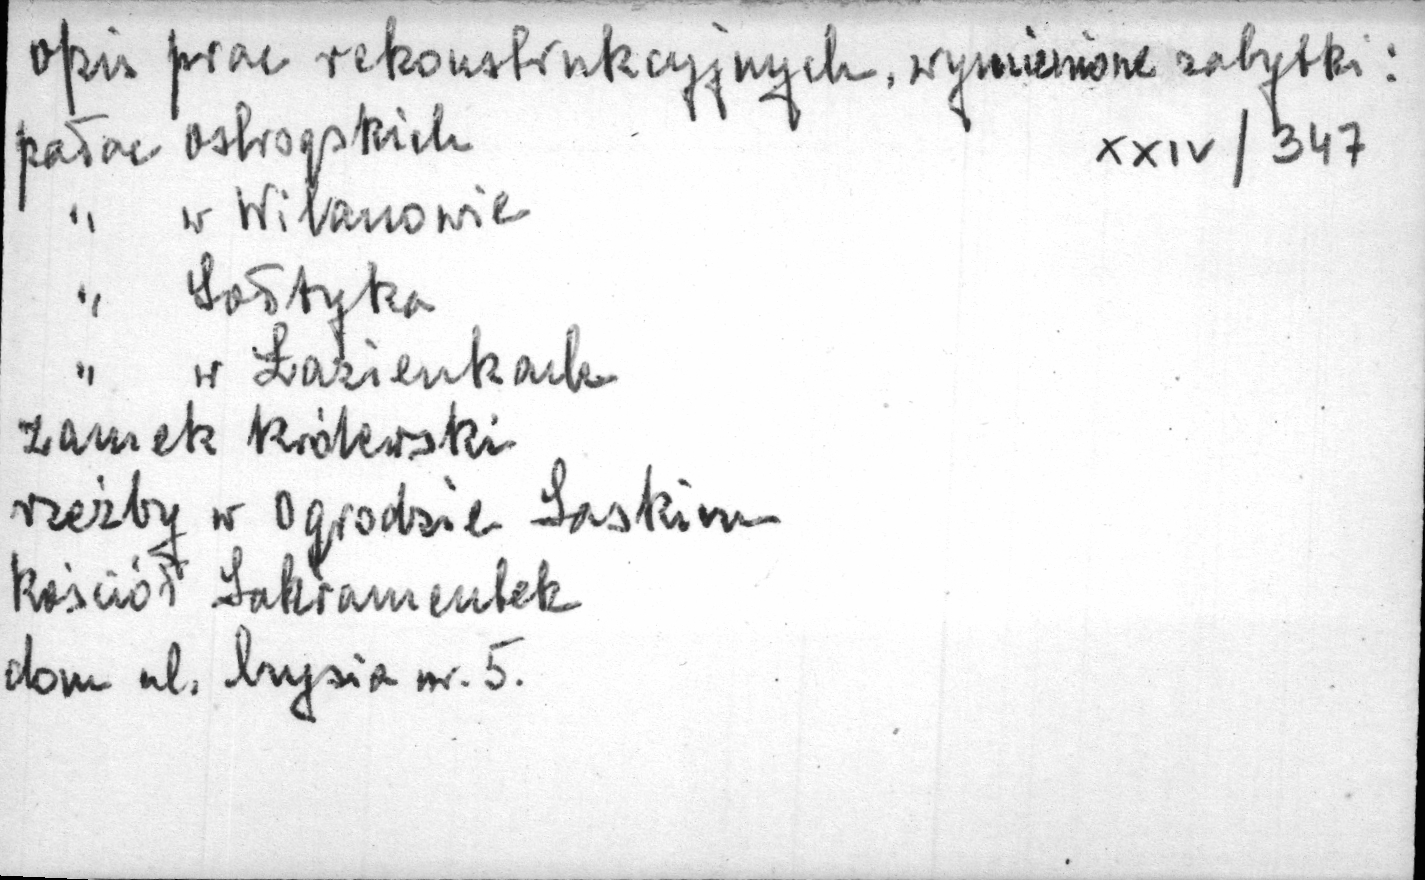 opis prac rekonstrukcyjnych, wymienione zabytki:
pałac Ostrogskich XXIV/347
" w Wilanowie
" Sołtyka
" w Łazienkach
zamek królewski
rzeźby w Ogrodzie Saskim
kościół Sakramentek
dom ul. nr. 5.